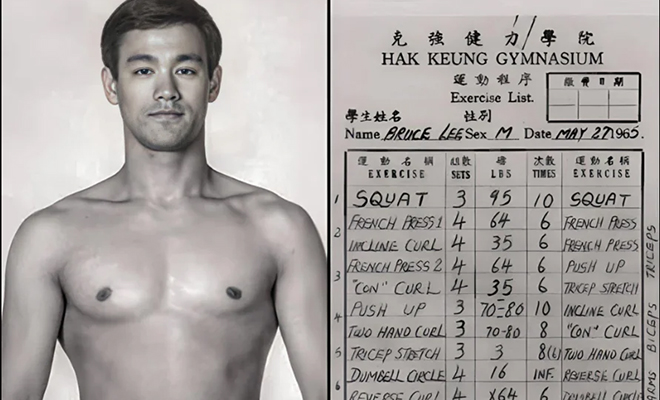 克強健力學院
HAK KEUNG GYMNASIUM
運動程序
繳費日期
Exercise List.
學生姓名 性別
Name BRUCE LEE Sex M Date MAY 27 1965.
運動名稱 組數 磅 次數 運動名稱
EXERCISE SETS LBS TIMES EXERCISE
1 SQUAT 3 95 10 SQUAT
FRENCH PRESS 1 4 64 6 FRENCH PRESS
2 INCLINE CURL 4 35 6 FRENCH PRESS
FRENCH PRESS 2 4 64 6 PUSH UP
3 "CON" CURL 4 35 6 TRICEP STRETCH
PUSH UP 3 70-80 10 INCLINE CURL
4 TWO HAND CURL 3 70-80 8 "CON" CURL
5 TRICEP STRETCH 3 3 8(6) TWO HAND CURL
DUMBELL CIRCLE 4 16 INF. REVERSE CURL
6 REVERSE CURL 4 X64 6 DUMBELL CIRCLE
TRICEPS
BICEPS